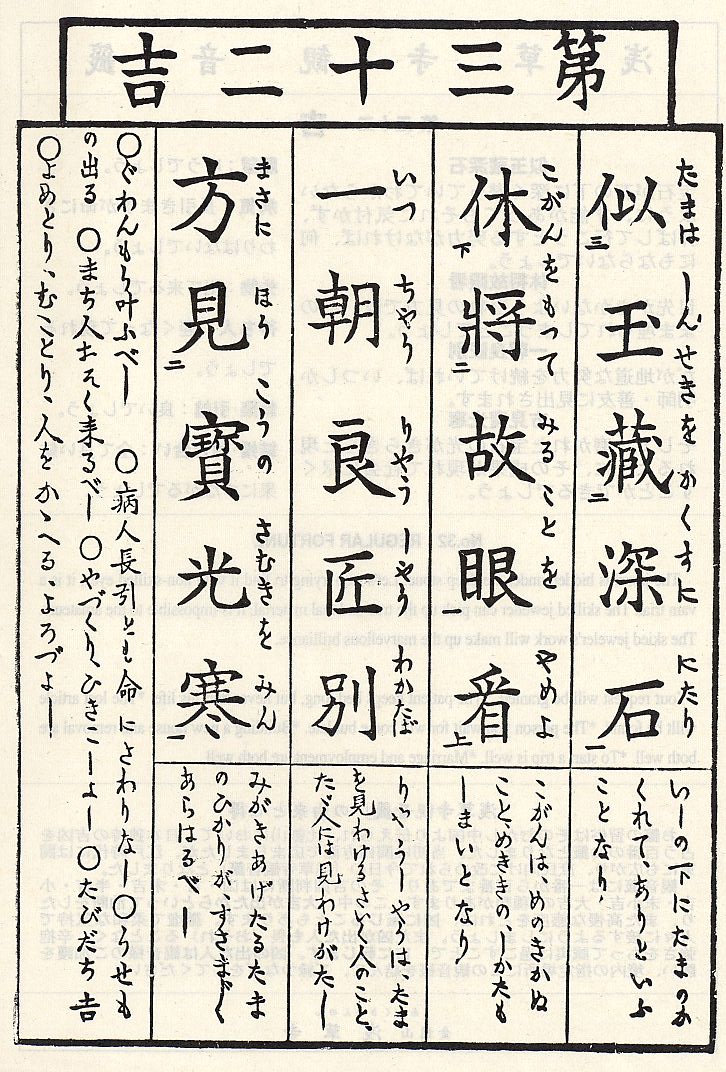 第三十二吉
たまは しんせきを かくすに にたり
似三玉藏二深石一
いしの下にたまのか
くれいる
ことなり、
こがんをもつて みることを やめよ
休下將二故眼看上
こがんはめのきかぬ
こと、めききの、かたも
しまいとなり
いつ ちやう りやう しやう わかたば
一朝良匠別
りやうしやうはたま
を見わけるさいく人のこと、
たゞ人には見わけがたし
まさに ほう こうの さむきを みん
方見二寶光寒一
みがきあげたるたま
のひかりがすさまじく
あらはるべし
○ぐわんもう叶ふべし ○病人長引とも命にさわりなし ○うせも
の出る ○まち人おそく来るべし ○やづくり、ひきこしよし ○たびだち吉
○よめとり、むことり、人をかゝへるよろづよ